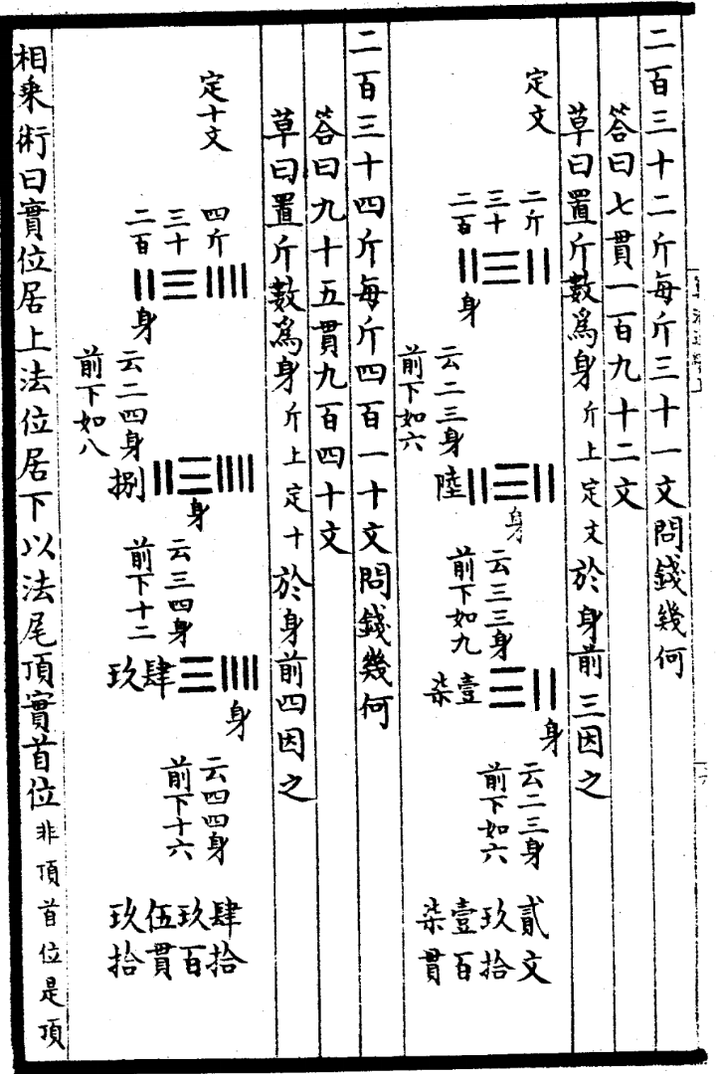 二百三十二斤每斤三十一文問錢幾何
答曰七貫一百九十二文
草曰置斤數爲身斤上定文於身前三因之
定文
二斤
三十
二百
身
云二三身
前下如六
陸
身
云三三身
前下如九
壹
柒
身
云二三身
前下如六
貳文
玖拾
壹百
柒貫
二百三十四斤每斤四百一十文問錢幾何
答曰九十五貫九百四十文
草曰置斤數爲身斤上定十於身前四因之
定十文
四斤
三十
二百
身
云二四身
前下如八
捌
身
云三四身
前下十二
肆
玖
身
云四四身
前下十六
肆拾
玖百
伍貫
玖拾
相乘術曰實位居上法位居下以法尾頂實首位非頂首位是頂